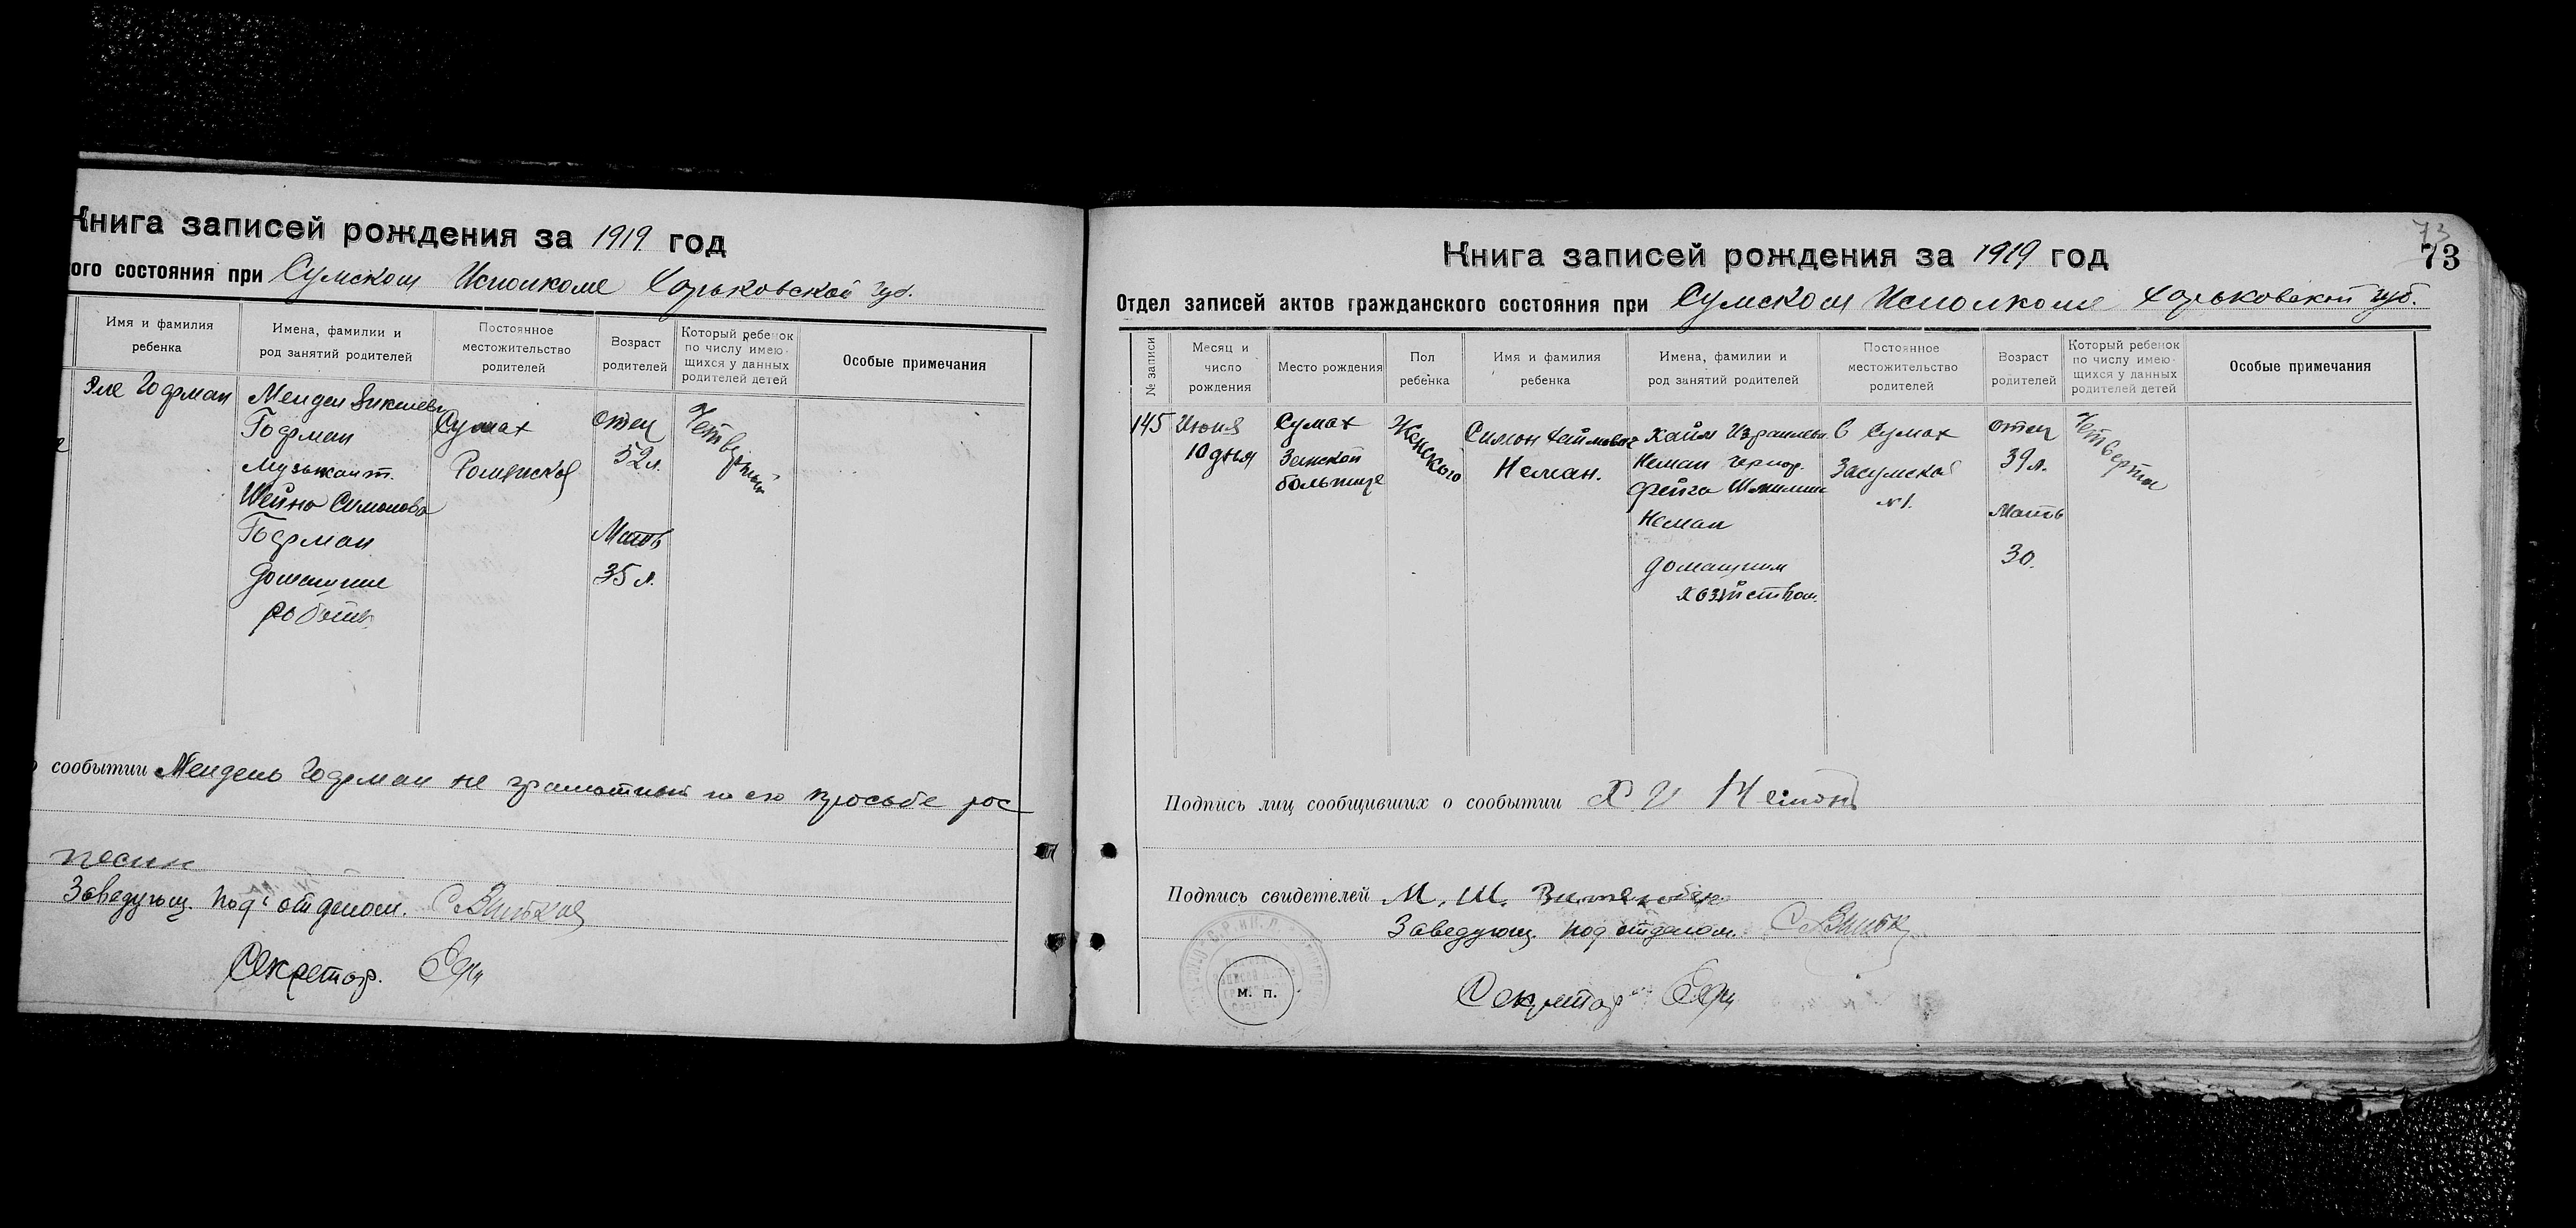 Книга записей рождения за 1919 год
ого состояния при Сумском Исполкоме Харьковской губ.
Имя и фамилия
ребенка
Имена, фамилии и
род занятий родителей
Постоянное
местожительство
родителей
Возраст
родителей
Который ребенок
по числу имею-
щихся у данных
родителей детей
Особые примечания
Гофман
Мендель
Гофман
музыкант.
Шейна Симонова
Гофман
домашние
работы
Сумах
Роменской
отец
52 л.
Мать
35 л.
Четвертый
сообытии Мендель Гофман не грамотный по его просьбе рос
писи
Заведующ. Подотделом.
Секретар.
73
73
Книга записей рождения за 1919 год
Отдел записей актов гражданского состояния при Сумском Исполкоме Харьковской губ.
№ записи
Месяц и
число
рождения
Место рождения
Пол
ребенка
Имя и фамилия
ребенка
Имена, фамилии и
род занятий родителей
Постоянное
местожительство
родителей
Возраст
родителей
Который ребенок
по числу имею-
щихся у данных
родителей детей
Особые примечания
145
Июня
10 дня
Сумах
Земской
больнице
Женского
Симон Хаимович
Неман.
Хаим Израилев.
Неман
Фейга
Неман
домашним
хозяйством.
В Сумах
Засумской
№ 1.
отец
39 л.
Мать
30.
Четверты
Подпись лиц сообщивших о сообытии Х И Неман
Подпись свидетелей М. Ш.
Заведующ. Подотделом.
м. п.
Секретар